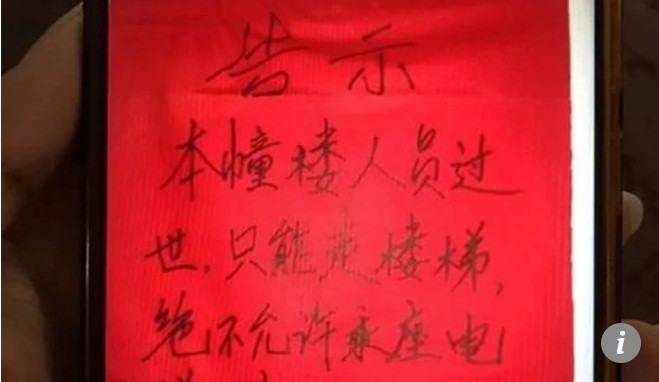 告示
本幢楼人员过
世，只能走楼梯，
绝不允许乘座电